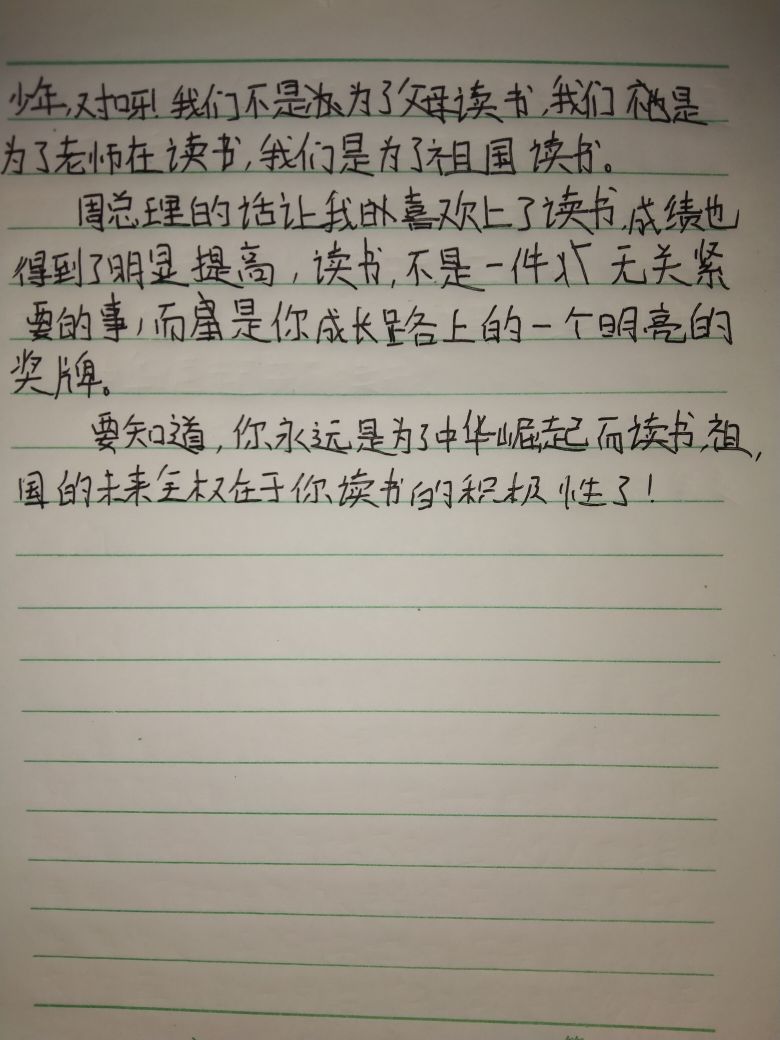 少年,对呀!我们不是为了父母读书,我们也是
为了老师在读书,我们是为了祖国读书。
周总理的话让我喜欢上了读书,成绩也
得到了明显提高,读书,不是一件无关紧
要的事,而是你成长路上的一个明亮的
奖牌。
要知道,你永远是为了中华崛起而读书,祖
国的未来全权在于你读书的积极性了!